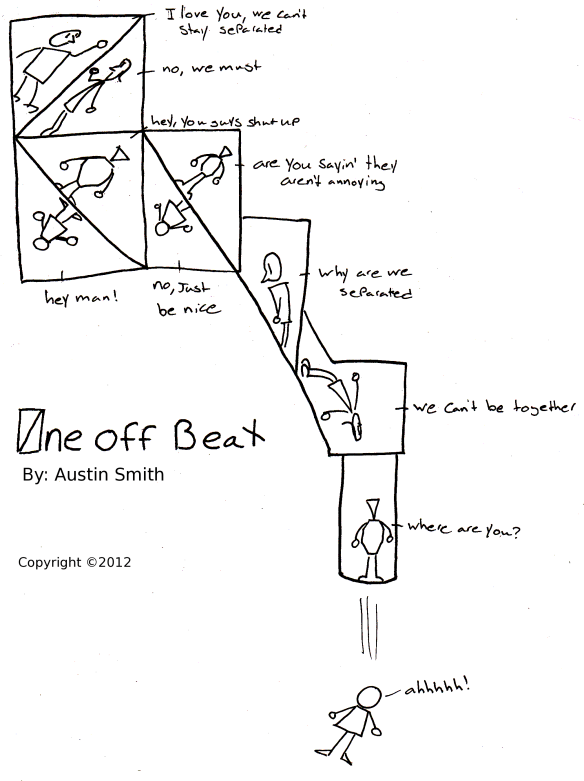 I love you, we can't
stay separated
no, we must
hey, you guys shut up
are you sayin' they
aren't annoying
hey man!
no, just
be nice
why are we
separated
we can't be together
One off Beat
By: Austin Smith
where are you?
Copyright ©2012
ahhhhh!